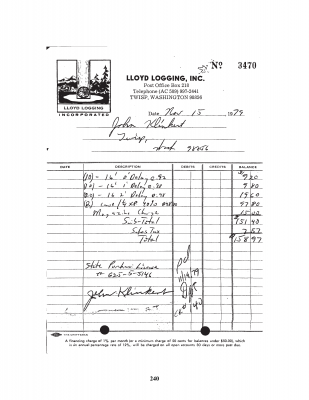 Nº 3470
LLOYD LOGGING, INC.
Post Office Box 210
Telephone (AC 509) 997-2441
TWISP, WASHINGTON 98856
LLOYD LOGGING
INCORPORATED
Date Nov 15 1979
John Klinkert
Twisp,
Wash 98856
DATE DESCRIPTION DEBITS CREDITS BALANCE
(10) - 16' 0" Delay 9 80
(10) - 16' 1 Delay 9 80
(20) - 16 2' Delay 19 60
(2) case 97 80
Magazine Charge 15 00
Sub-Total 151 40
Sales Tax 7 57
Total 158 97
State Purchase License
# 625-S-5146
John Klinkert
pd
A financing charge of 1% per month (or a minimum charge of 50 cents for balances under $50.00), which
is an annual percentage rate of 12%, will be charged on all open accounts 30 days or more past due.
240